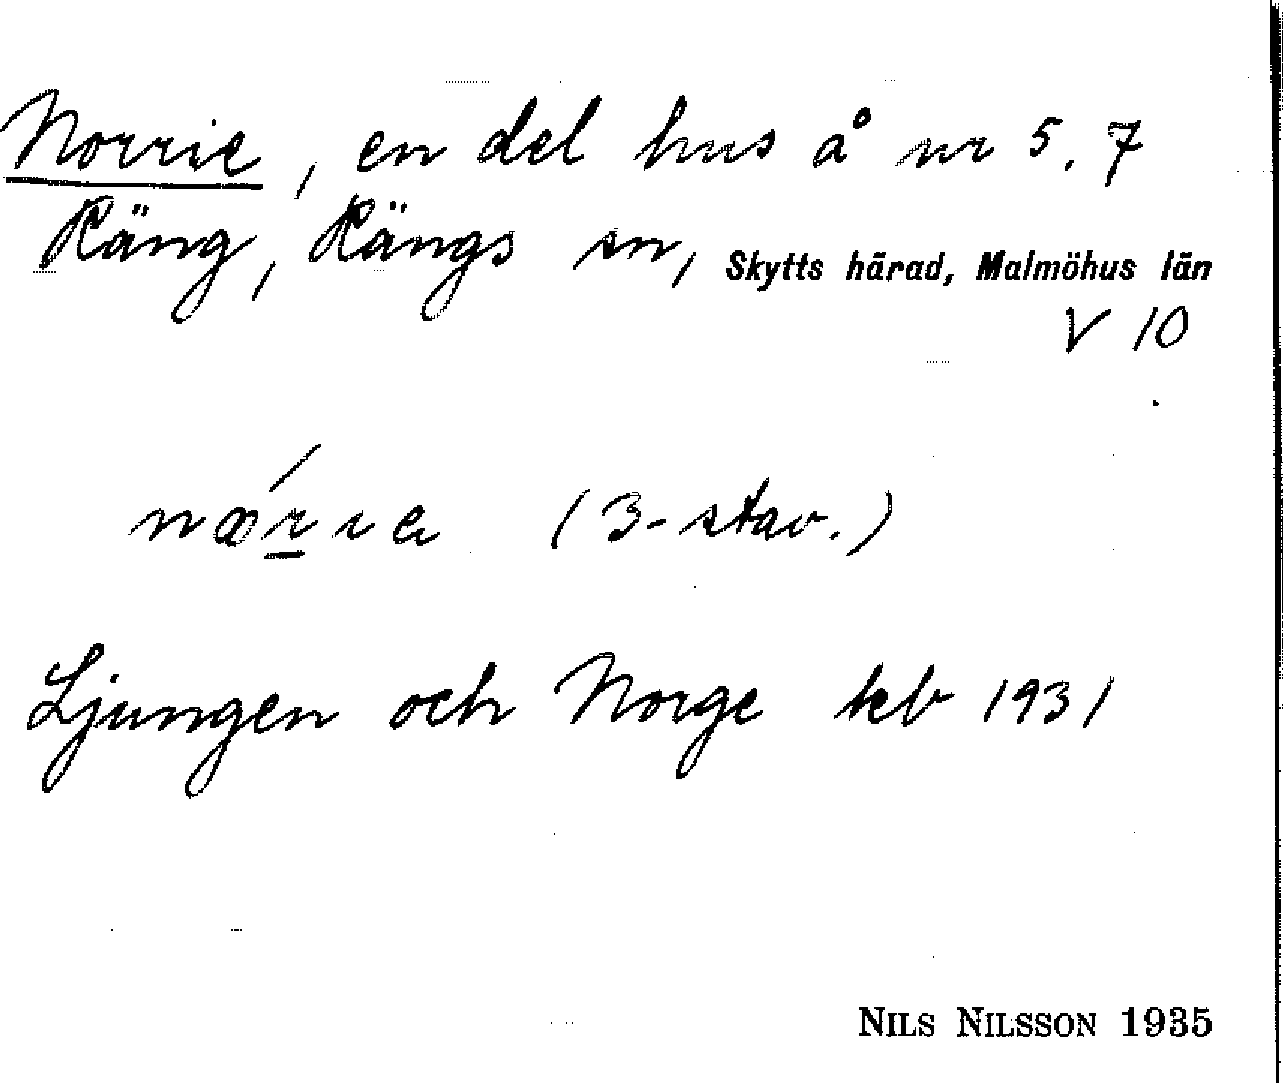 Norrie, en del hus å nr 5, 7
Räng, Rängs sn, Skytts härad, Malmöhus län
V 10
(3-stav.)
Ljungen och Norge kb 1931
NILS NILSSON 1935